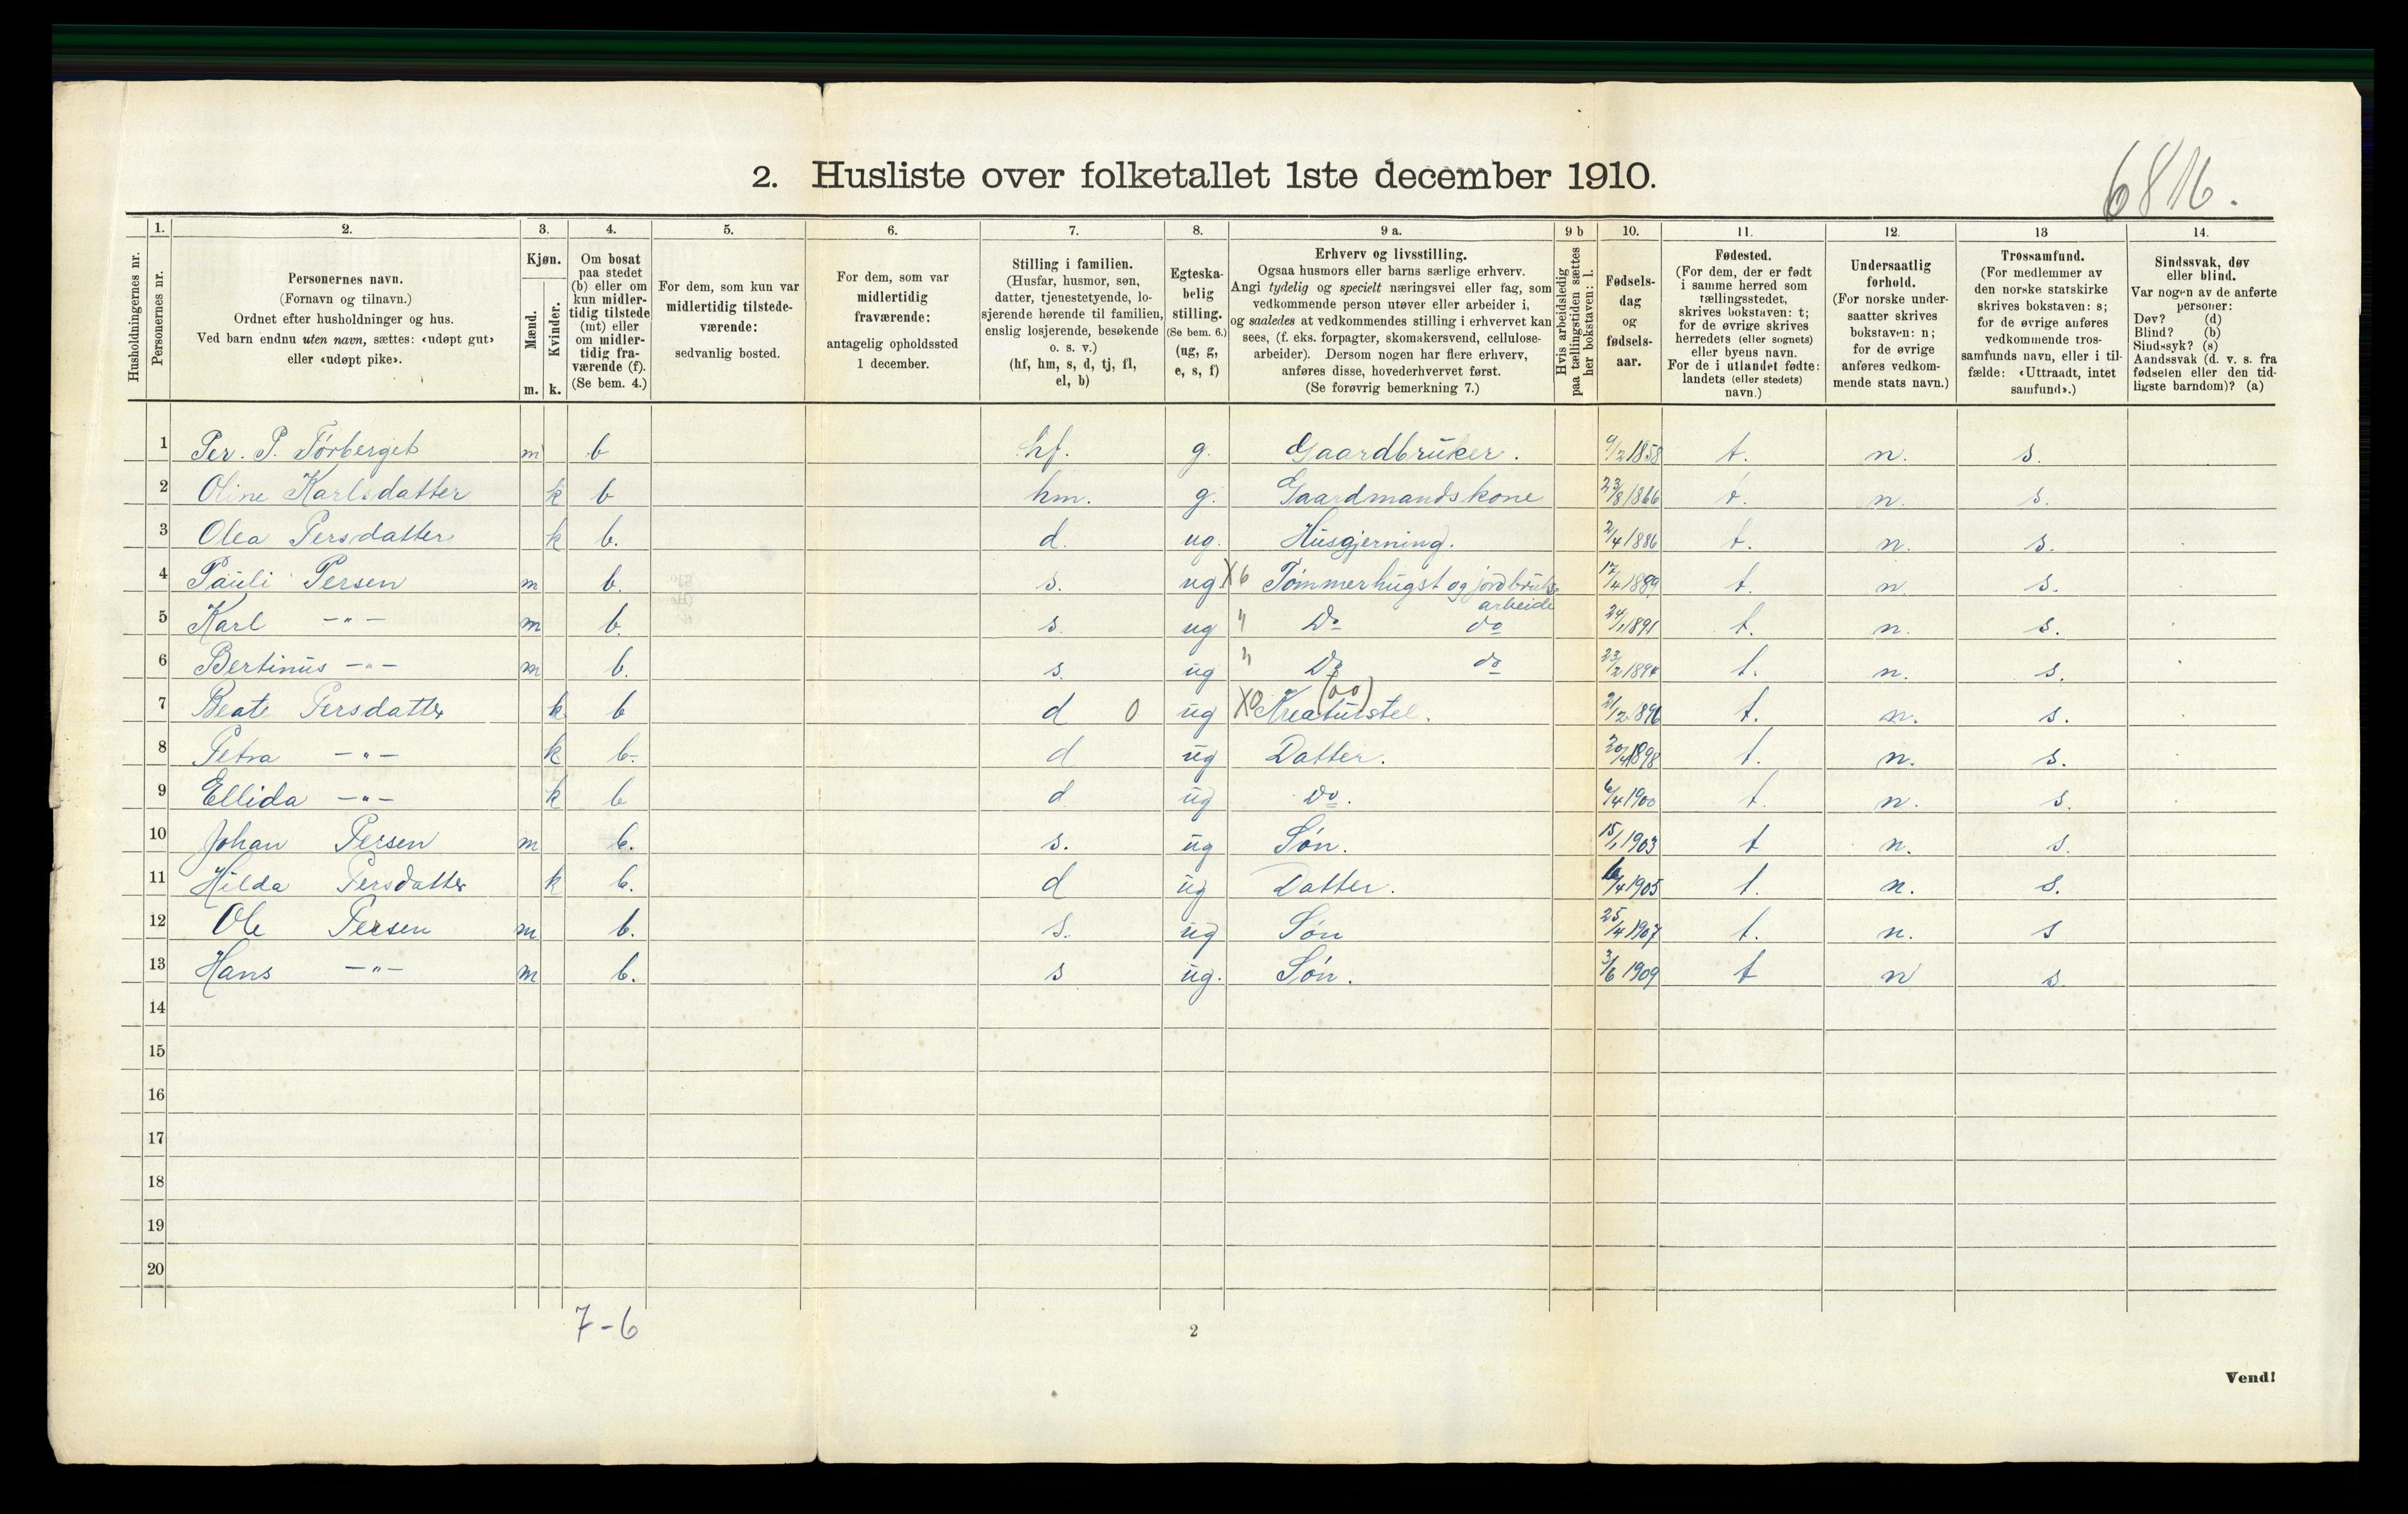 2. Husliste over folketallet 1ste december 1910.
6816.
Husholdningernes nr.
1. Personernes nr.
2. Personernes navn.
(Fornavn og tilnavn.)
Ordnet efter husholdninger og hus.
Ved barn endnu uten navn, sættes: «udøpt gut»
eller «udøpt pike».
3. Kjøn.
Mænd. m.
Kvinder. k.
4. Om bosat
paa stedet
(b) eller om
kun midler-
tidig tilstede
(mt) eller
om midler-
tidig fra-
værende (f).
(Se bem. 4.)
5. For dem, som kun var
midlertidig tilstede-
værende:
sedvanlig bosted.
6. For dem, som var
midlertidig
fraværende:
antagelig opholdssted
1 december.
7. Stilling i familien.
(Husfar, husmor, søn,
datter, tjenestetyende, lo-
sjerende hørende til familien,
enslig losjerende, besøkende
o. s. v.)
(hf, hm, s, d, tj, fl,
el, b)
8. Egteska-
belig
stilling.
(Se bem. 6.)
(ug, g,
e, s, f)
9 a. Erhverv og livsstilling.
Ogsaa husmors eller barns særlige erhverv.
Angi tydelig og specielt næringsvei eller fag, som
vedkommende person utøver eller arbeider i,
og saaledes at vedkommendes stilling i erhvervet kan
sees, (f. eks. forpagter, skomakersvend, cellulose-
arbeider). Dersom nogen har flere erhverv,
anføres disse, hovederhvervet først.
(Se forøvrig bemerkning 7.)
9 b Hvis arbeidsledig
paa tællingstiden sættes
her bokstaven: l.
10. Fødsels-
dag
og
fødsels-
aar.
11. Fødested.
(For dem, der er født
i samme herred som
tællingsstedet,
skrives bokstaven: t;
for de øvrige skrives
herredets (eller sognets)
eller byens navn.
For de i utlandet fødte:
landets (eller stedets)
navn.)
12. Undersaatlig
forhold.
(For norske under-
saatter skrives
bokstaven: n;
for de øvrige
anføres vedkom-
mende stats navn.)
13 Trossamfund.
(For medlemmer av
den norske statskirke
skrives bokstaven: s;
for de øvrige anføres
vedkommende tros-
samfunds navn, eller i til-
fælde: «Uttraadt, intet
samfund».)
14. Sindssvak, døv
eller blind.
Var nogen av de anførte
personer:
Døv? (d)
Blind? (b)
Sindssyk? (s)
Aandssvak (d. v. s. fra
fødselen eller den tid-
ligste barndom)? (a)
1 Per. P. Törberget m b hf. g. Gaardbruker. 9/2 1858 t. n. s.
2 Oline Karlsdatter k b hm. g. Gaardmandskone 23/8 1866 t. n. s.
3 Olea Persdatter k b. d. ug. Husgjerning. 2/4 1886 t. n. s.
4 Pauli Persen m b. s. ug X6 Tömmerhugst og jordbruks-
arbeide 17/4 1889 t. n. s.
5 Karl -"- m b. s. ug " Do do 24/1 1891 t. n. s.
6 Bertinus -"- m b. s. ug " Do do 23/2 1894 t. n. s.
7 Beate Persdatter k b d 0 ug X0 Kreaturstel. (00) 21/2 1896 t. n. s.
8 Petra -"- k b. d ug Datter. 20/4 1898 t. n. s.
9 Ellida -"- k b d ug Do. 6/4 1900 t. n. s.
10 Johan Persen m b. s. ug Søn. 15/1 1903 t n. s.
11 Hilda Persdatter k b. d ug Datter. 6/4 1905 t. n. s.
12 Ole Persen m b. s. ug Søn 25/4 1907 t. n. s
13 Hans -"- m b. s ug. Søn. 3/6 1909 t n s.
14
15
16
17
18
19
20
7-6
2
Vend!